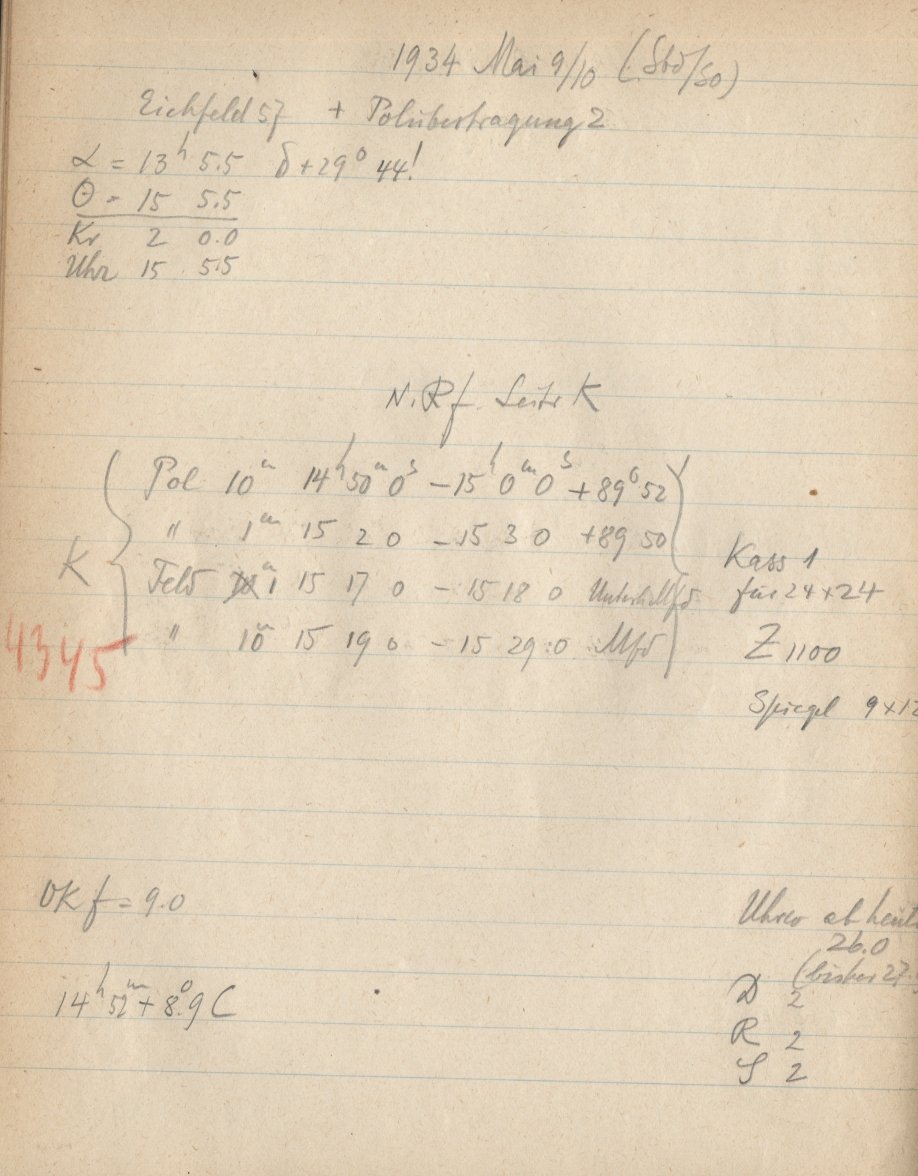 1934 Mai 9/10 (Sbd/So)
Eichfeld 57 + Polübertragung 2
α = 13ʰ 5.5 δ + 29° 44!
Θ = 15 5.5
Kr 2 0.0
Uhr 15 5.5
N. Rf Seite K
Pol 10ᵐ 14ʰ 50ᵐ 0ˢ – 15ʰ 0ᵐ 0ˢ + 89° 52
" 1ᵐ 15 2 0 – 15 3 0 + 89 50
K Feld 1 15 17 0 – 15 18 0
" 10ᵐ 15 19 0 – 15 29 0 Mfd
Kass 1
für 24 x 24
Z 1100
Spiegel 9 x 12
4345
OK f = 9.0
14ʰ 52ᵐ + 8.°9 C
Uhren ab heute
26.0
(bisher 27.
D 2
R 2
S 2